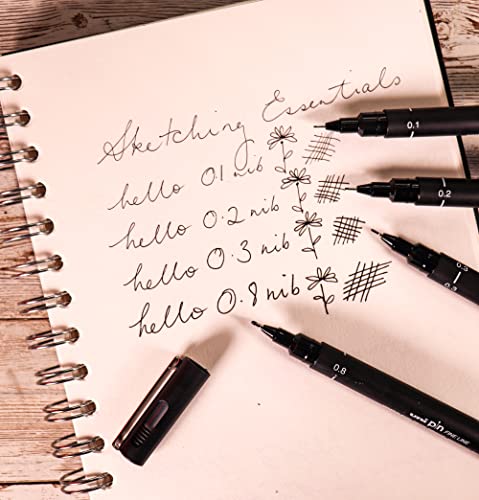 Sketching Essentials
hello 0.1 nib
hello 0.2 nib
hello 0.3 nib
hello 0.8 nib
0.1
0.2
0.3
0.8
uni pin FINE LINE